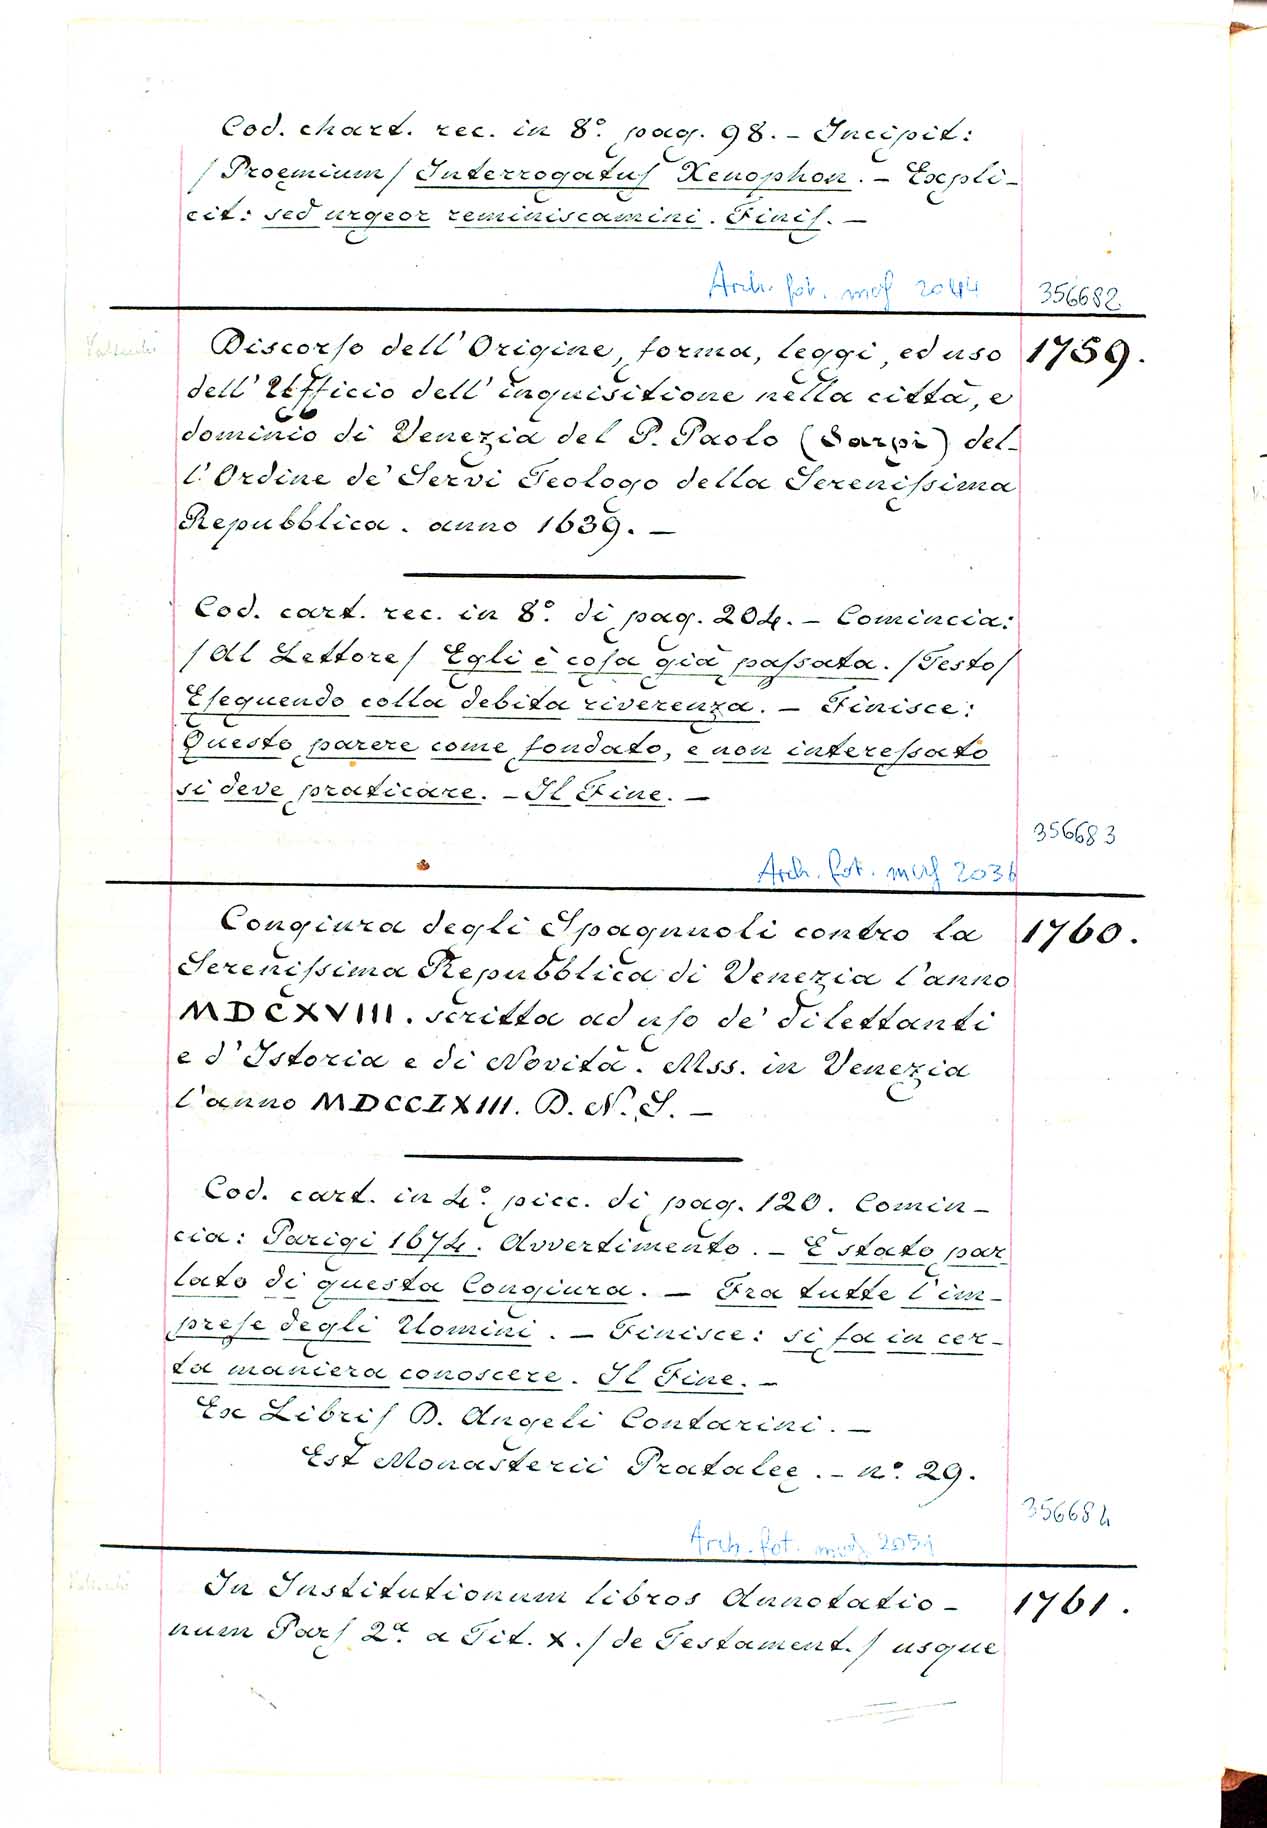 Cod. chart. rec. in 8º. pag. 98. - Incipit:
/Proemium/ Interrogatuſ Xenophon. - Expli-
cit: sed urgeor reminiscamini. Finiſ. -
Arch. fot. mcf 2044 356682
Discorſo dell' Origine, forma, leggi, ed uso 1759.
dell' Ufficio dell' inquisitione nella città, e
dominio di Venezia del P. Paolo (Sarpi) del-
l'Ordine de' Servi Teologo della Sereniſsima
Repubblica. anno 1639. -
Cod. cart. rec. in 8º. di pag. 204. - Comincia:
/Al Lettore/ Egli è coſa già paſsata. /Testo/
Eſequendo colla debita riverenza. - Finisce:
Questo parere come fondato, e non intereſsato
si deve praticare. - Il Fine. -
356683
Arch. fot. mcf 2036
Congiura degli Spagnuoli contro la 1760.
Sereniſsima Repubblica di Venezia l'anno
MDCXVIII. scritta ad uſo de' dilettanti
e d'Istoria e di Novità. Mss. in Venezia
l'anno MDCCLXIII. D. N. S. -
Cod. cart. in 4º. picc. di pag. 120. Comin-
cia: Parigi 1674. Avvertimento. - È stato par
lato di questa Congiura. - Fra tutte l'im-
preſe degli Uomini. - Finisce: si fa in cer-
ta maniera conoscere. Il Fine. -
Ex Libriſ D. Angeli Contarini. -
Est Monasterii Pratalee. - nº. 29.
356684
Arch. fot. mcf 2051
In Institutionum libros Annotatio- 1761.
num Parſ 2ª. a Tit. X. /de Testament./ usque